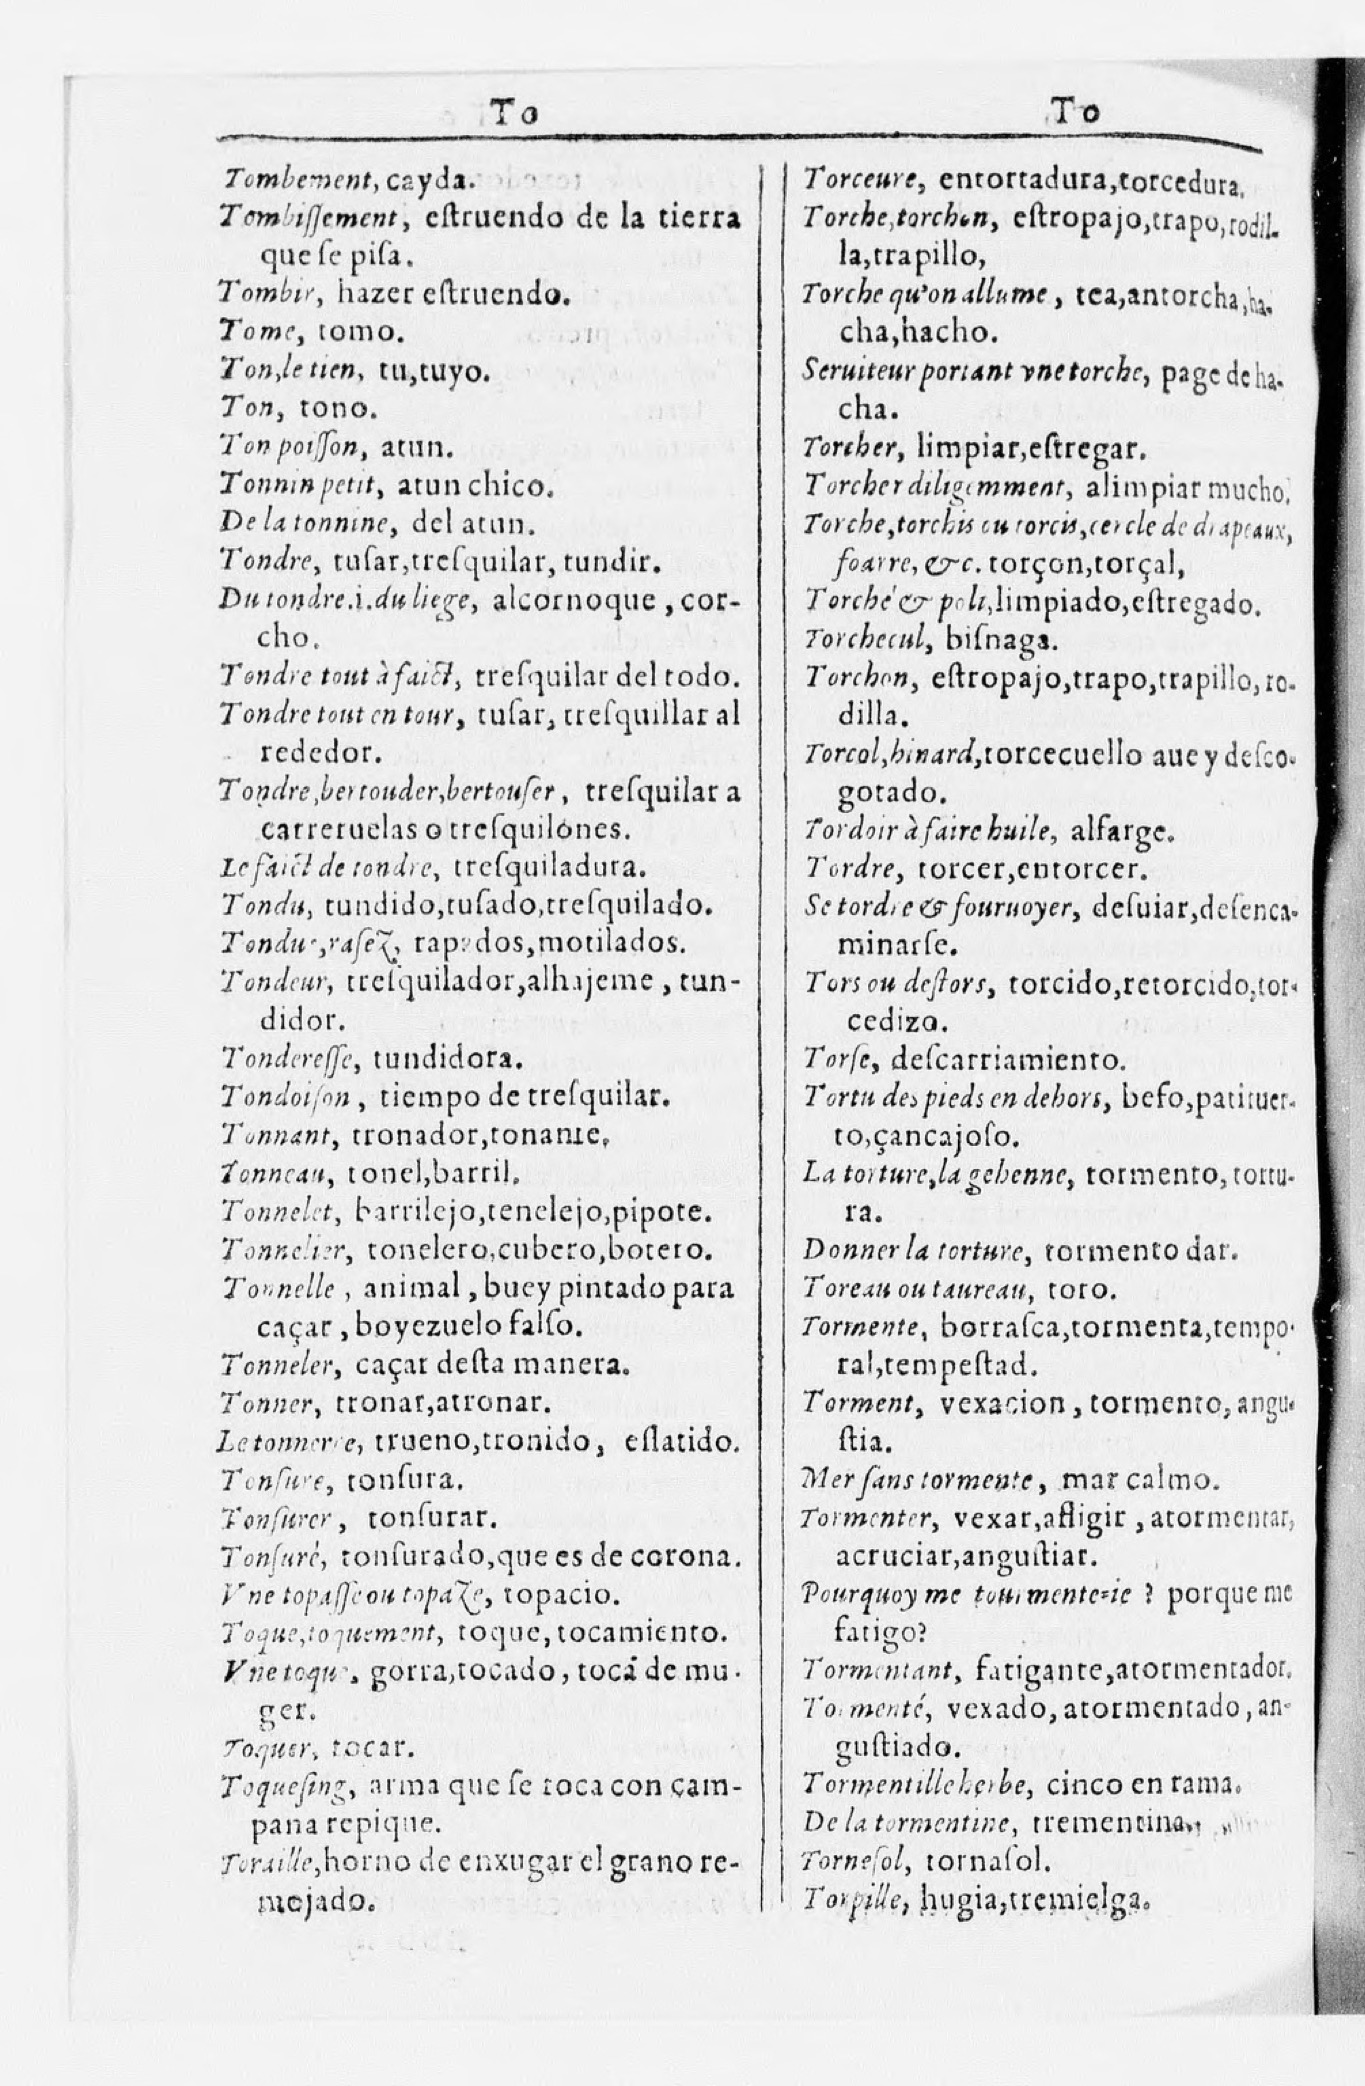 To
Tombement, cayda.
Tombiſſement, eſtruendo de la tierra
que ſe piſa.
Tombir, hazer eſtruendo.
Tome, tomo.
Ton, le tien, tu, tuyo.
Ton, tono.
Ton poiſſon, atun.
Tonnin petit, atun chico.
De la tonnine, del atun.
Tondre, tuſar, treſquilar, tundir.
Du tondre .i. du liege, alcornoque, cor-
cho.
Tondre tout à faict, treſquilar del todo.
Tondre tout en tour, tuſar, treſquillar al
rededor.
Tondre, bertouder, bertouſer, treſquilar a
carreruelas o treſquilones.
Le faict de tondre, treſquiladura.
Tondu, tundido, tuſado, treſquilado.
Tondus, raſez, rapados, motilados.
Tondeur, treſquilador, alhajeme, tun-
didor.
Tondereſſe, tundidora.
Tondoiſon, tiempo de treſquilar.
Tonnant, tronador, tonante,
Tonneau, tonel, barril.
Tonnelet, barrilejo, tenelejo, pipote.
Tonnelier, tonelero, cubero, botero.
Tonnelle, animal, buey pintado para
caçar, boyezuelo falſo.
Tonneler, caçar deſta manera.
Tonner, tronar, atronar.
Le tonnerre, trueno, tronido, eſlatido.
Tonſure, tonſura.
Tonſurer, tonſurar.
Tonſuré, tonſurado, que es de corona.
Vne topaſſe ou topaze, topacio.
Toque, toquement, toque, tocamiento.
Vne toque, gorra, tocado, toca de mu-
ger.
Toquer, tocar.
Toqueſing, arma que ſe toca con cam-
pana repique.
Toraille, horno de enxugar el grano re-
mojado.
To
Torceure, entortadura, torcedura.
Torche, torchon, eſtropajo, trapo, rodil-
la, trapillo,
Torche qu'on allume, tea, antorcha, ha-
cha, hacho.
Seruiteur portant vne torche, page de ha-
cha.
Torcher, limpiar, eſtregar.
Torcher diligemment, alimpiar mucho.
Torche, torchis ou torcis, cercle de drapeaux,
foarre, &c. torçon, torçal,
Torché & poli, limpiado, eſtregado.
Torchecul, biſnaga.
Torchon, eſtropajo, trapo, trapillo, ro-
dilla.
Torcol, hinard, torcecuello aue y deſco-
gotado.
Tordoir à faire huile, alfarge.
Tordre, torcer, entorcer.
Se tordre & fouruoyer, deſuiar, deſenca-
minarſe.
Tors ou deſtors, torcido, retorcido, tor-
cedizo.
Torſe, deſcarriamiento.
Tortu des pieds en dehors, befo, patituer-
to, çancajoſo.
La torture, la gehenne, tormento, tortu-
ra.
Donner la torture, tormento dar.
Toreau ou taureau, toro.
Tormente, borraſca, tormenta, tempo-
ral, tempeſtad.
Torment, vexacion, tormento, angu-
ſtia.
Mer ſans tormente, mar calmo.
Tormenter, vexar, afligir, atormentar,
acruciar, anguſtiar.
Pourquoy me tourmente-ie? porque me
fatigo?
Tormentant, fatigante, atormentador.
Tormenté, vexado, atormentado, an-
guſtiado.
Tormentille herbe, cinco en rama.
De la tormentine, trementina.
Torneſol, tornaſol.
Torpille, hugia, tremielga.